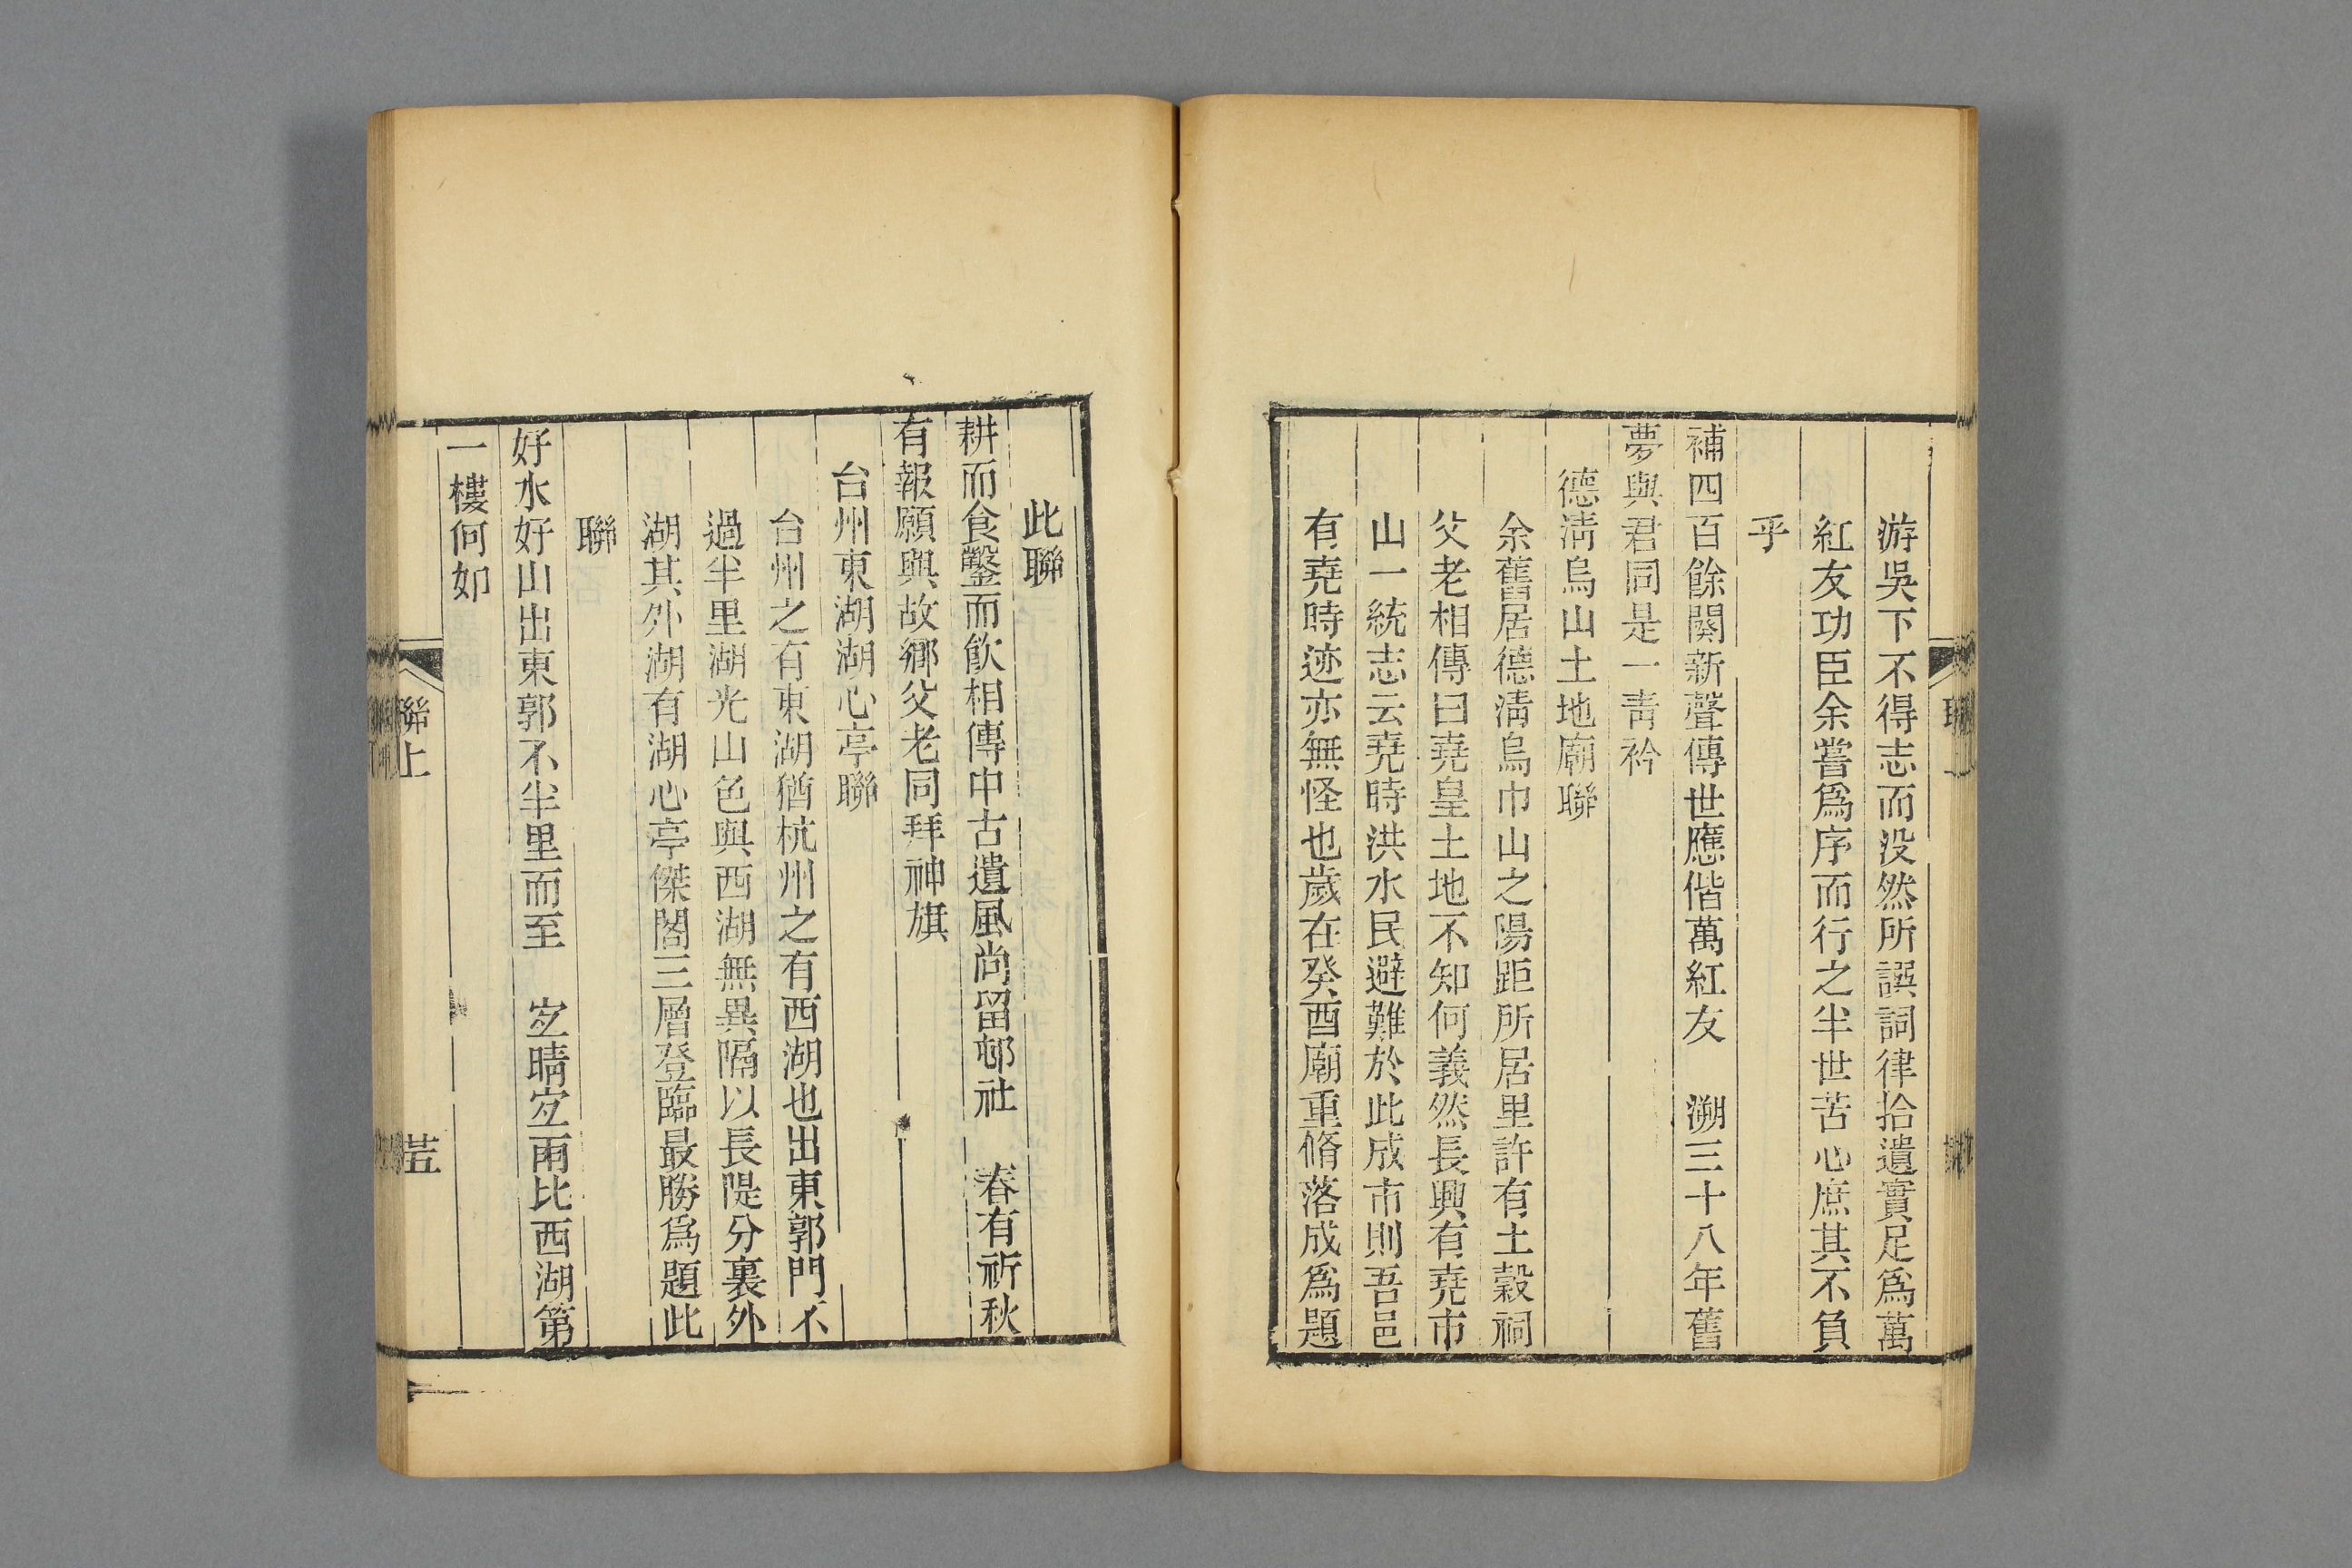 游吳下不得志而没然所譔詞律拾遺實足爲萬
紅友功臣余嘗爲序而行之半世苦心庶其不負
乎
補四百餘闋新聲傳世應偕萬紅友　溯三十八年舊
夢與君同是一靑衿
德淸烏山土地廟聯
余舊居德淸烏巾山之陽距所居里許有土穀祠
父老相傳曰堯皇土地不知何義然長興有堯市
山一統志云堯時洪水民避難於此成市則吾邑
有堯時迹亦無怪也歲在癸酉廟重脩落成爲題
此聯
耕而食鑿而飮相傳中古遺風尚留邨社　春有祈秋
有報願與故鄉父老同拜神旗
台州東湖湖心亭聯
台州之有東湖猶杭州之有西湖也出東郭門不
過半里湖光山色與西湖無異隔以長隄分裏外
湖其外湖有湖心亭傑閣三層登臨最勝爲題此
聯
好水好山出東郭不半里而至　宐晴宐雨比西湖第
一樓何如
聯上